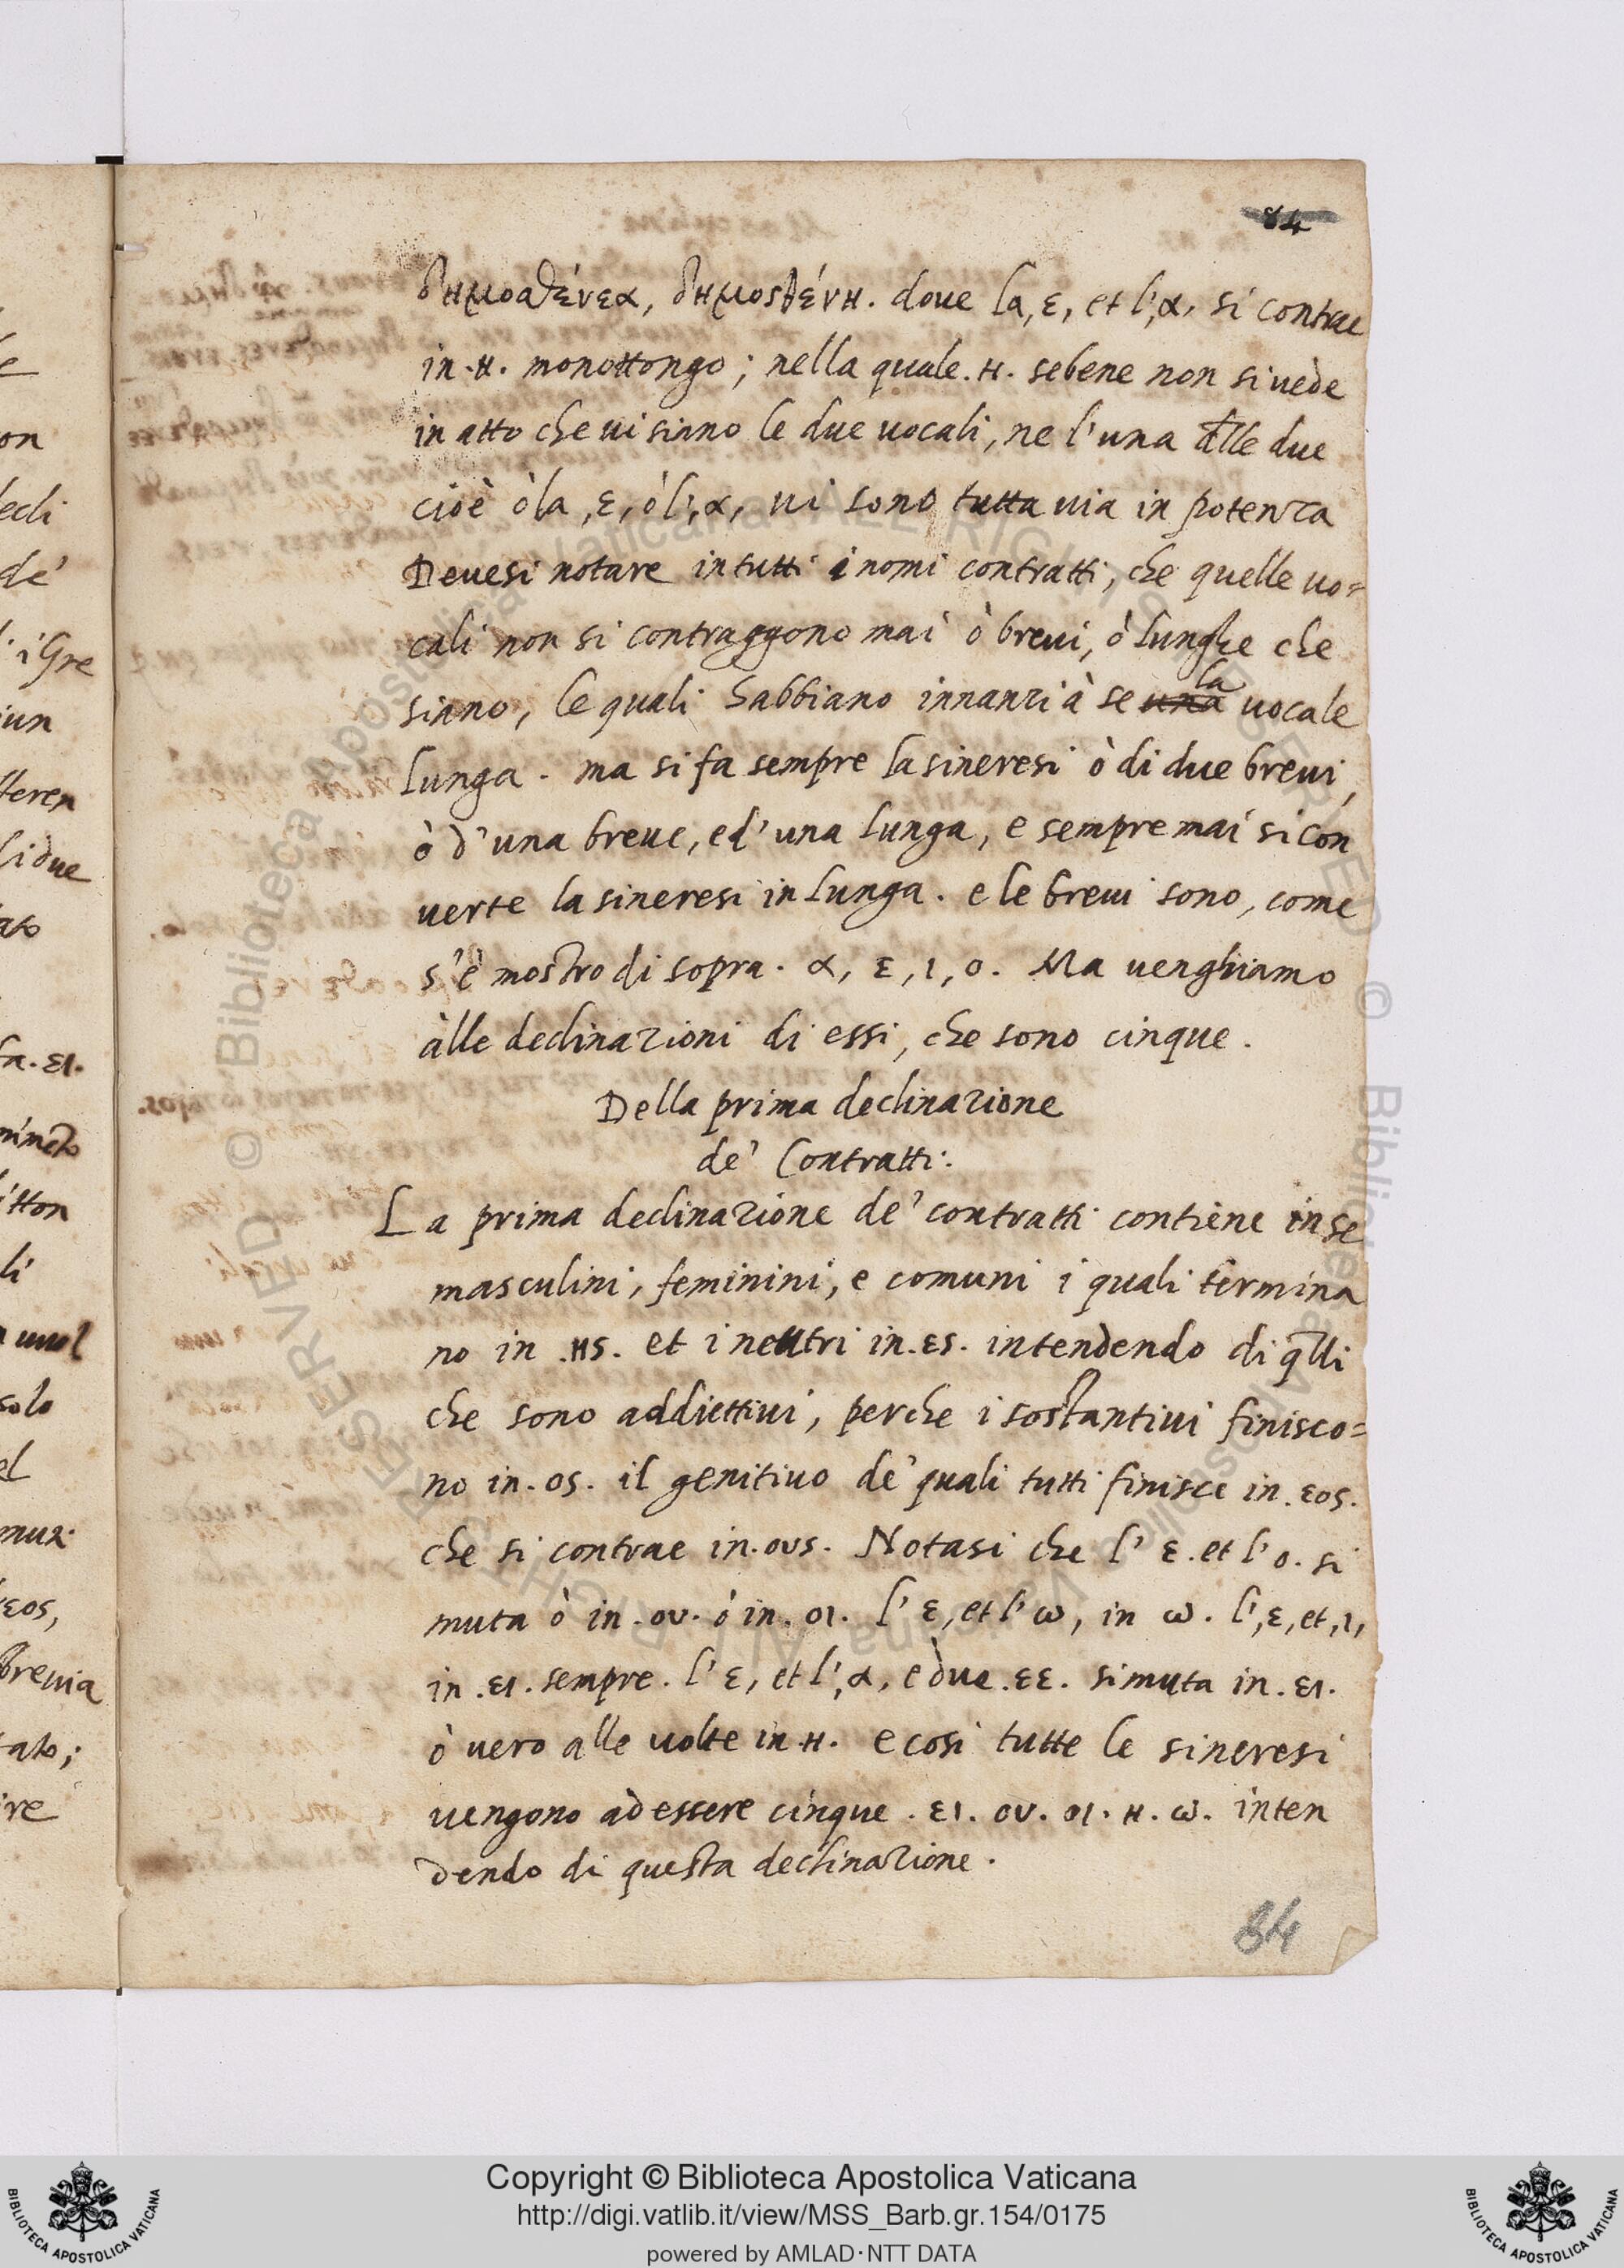 84
δημοσθένεα, δημοσθένη. doue la, ε, et l', α, si contrae
in. η. monottongo; nella quale. η. sebene non si uede
in atto che ui siano le due uocali, ne l'una dlle due
cioè ò la, ε, ò l', α, ui sono tutta uia in potenza
Deuesi notare in tutti i nomi contratti, che quelle uo=
cali non si contraggono mai ò breui, ò lunghe che
siano, le quali habbiano innanzi à se la uocale
lunga. ma si fa sempre la sineresi ò di due breui,
ò d'una breue, e d'una lunga, e sempre mai si con
uerte la sineresi in lunga. e le breui sono, come
s'è mostro di sopra. α, ε, ι, ο. Ma uenghiamo
àlle declinazioni di essi, che sono cinque.
Della prima declinazione
de' Contratti.
La prima declinazione de' contratti contiene in se
masculini, feminini, e comuni i quali termina
no in .ης. et i neutri in .ες. intendendo di qlli
che sono addiettiui, perche i sostantiui finisco=
no in. ος. il genitiuo de' quali tutti finisce in. εος.
che si contrae in. ους. Notasi che l' ε. et l' ο. si
muta ò in. ου. ò in. οι. l' ε, et l' ω, in ω. l', ε, et, ι,
in. ει. sempre. l' ε, et l', α, e due. εε. si muta in. ει.
ò uero alle uolte in η. e così tutte le sineresi
uengono ad essere cinque. ει. ου. οι. η. ω. inten
dendo di questa declinazione.
84
Copyright © Biblioteca Apostolica Vaticana
http://digi.vatlib.it/view/MSS_Barb.gr.154/0175
powered by AMLAD·NTT DATA
BIBLIOTECA APOSTOLICA VATICANA
BIBLIOTECA APOSTOLICA VATICANA